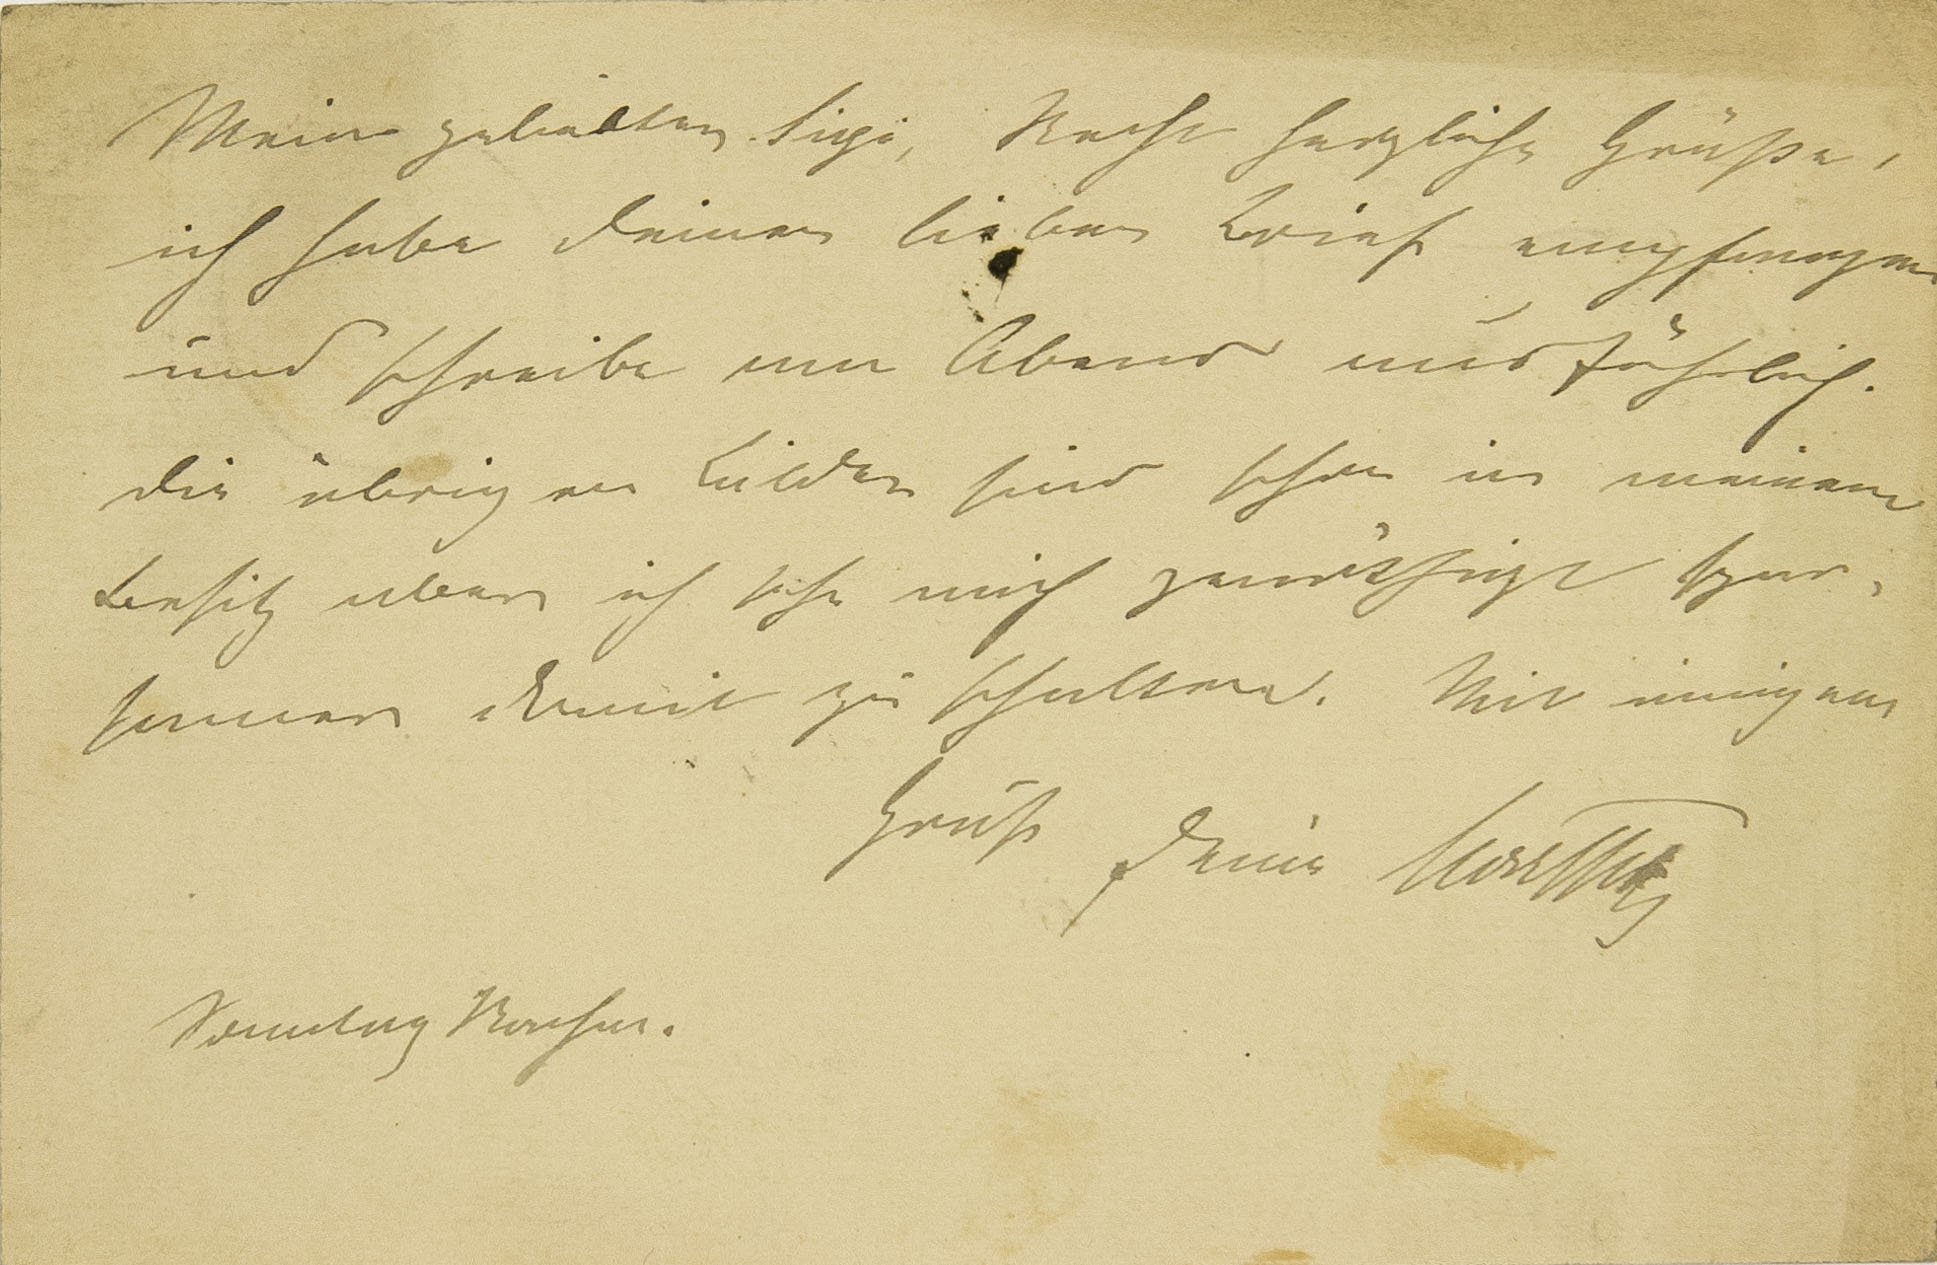 Mein geliebter Sigi, Recht herzliche Grüße,
ich habe Deinen lieben Brief empfangen
und schreibe am Abend ausführlich.
Die übrigen Bilder sind schon in meinem
Besitz aber ich sehe mich genöthigt spar-
samer damit zu schalten. Mit innigem
Gruß Dein
Sonntag Nachm.